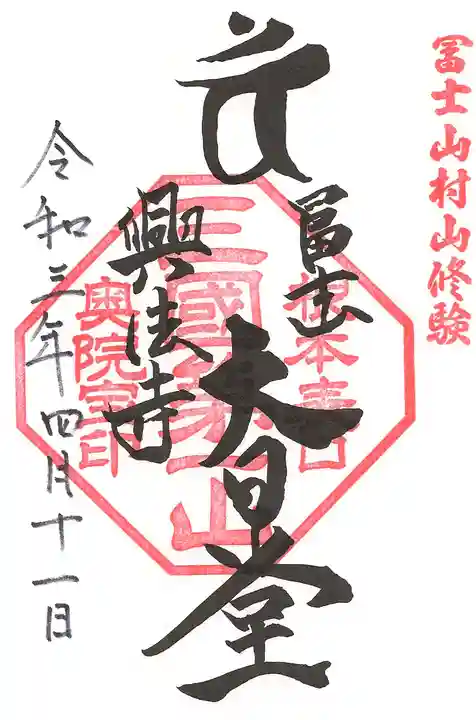 冨士山村山修験
冨士山
大日堂
興法寺
根本表口
三國第一山
奥院室印
令和三年四月十一日